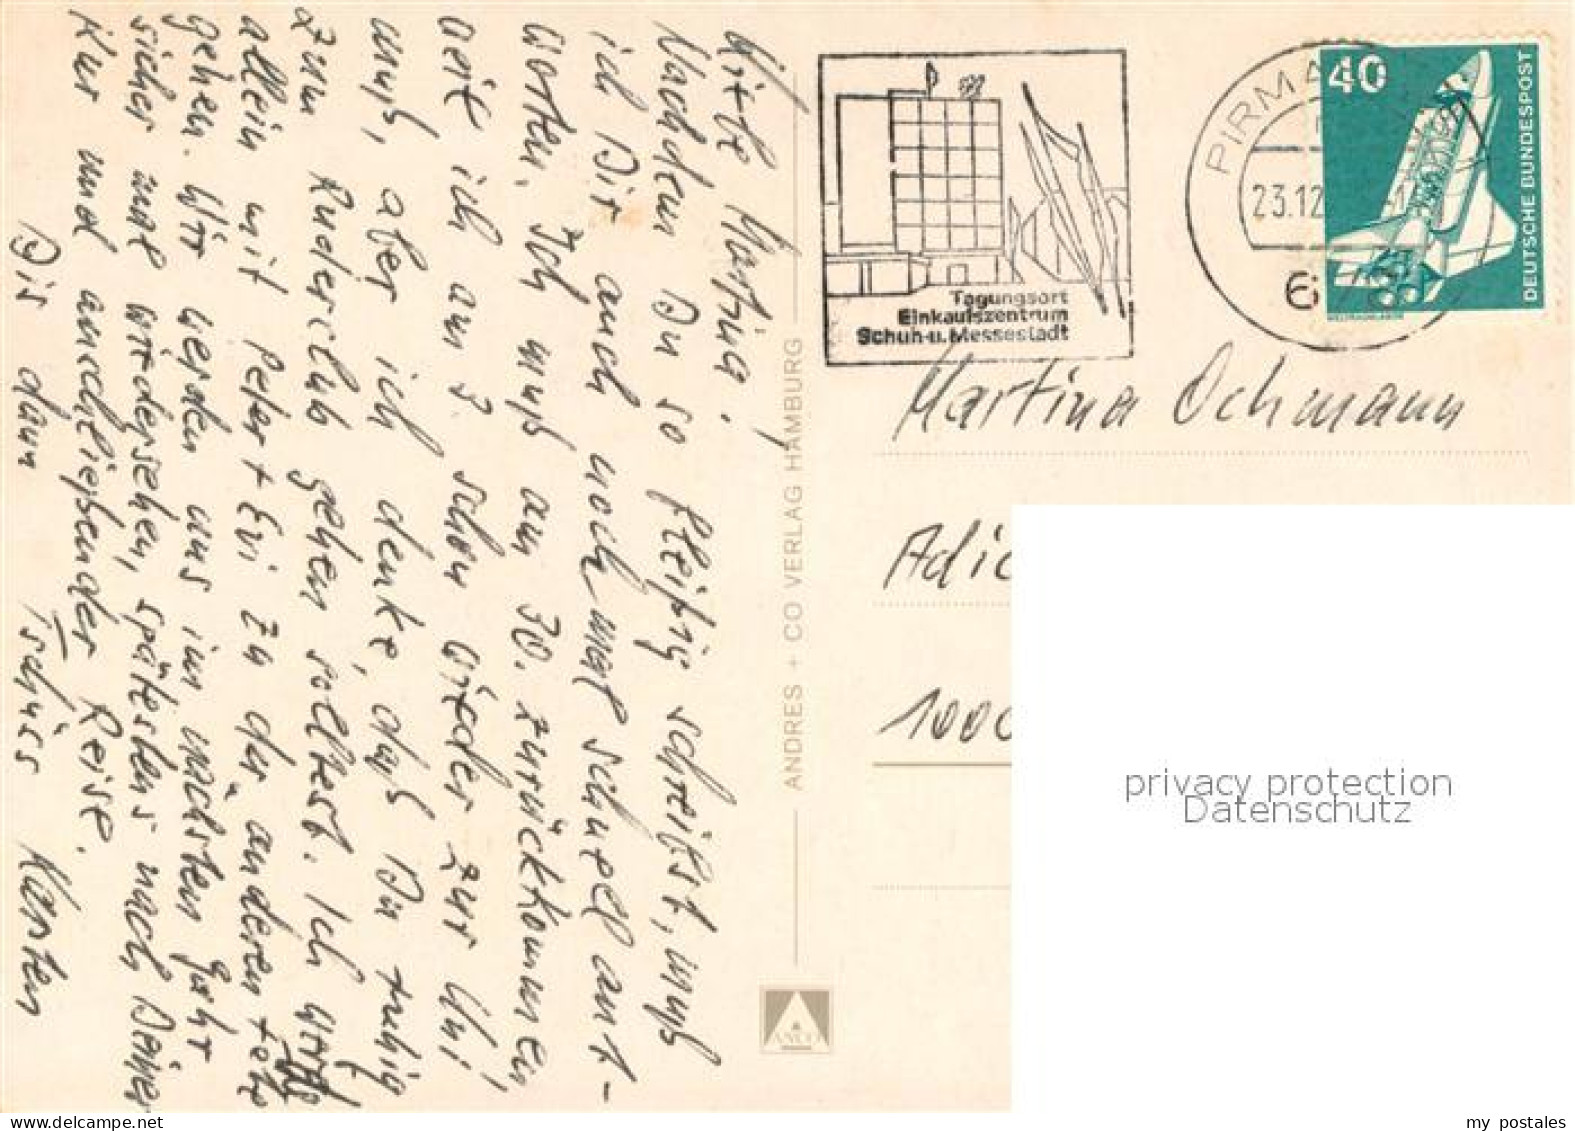 Liebe Martina,
Nachdem Du so fleißig schreibst, muß
ich Dir auch noch mal schnell ant-
worten. Ich muß am 30. zurückkommen,
weil ich am 3. schon wieder zur Uni
muß, aber ich denke, daß Du ruhig
zum Ruderclub gehen solltest. Ich
allein mit Peter + Evi zu der anderen
gehen. Wir werden uns im nächsten Jahr
sicher mal wiedersehen, spätestens nach Deiner
Kur und anschließender Reise.
Bis dann Tschüss Karsten
ANDRES + CO VERLAG HAMBURG
Tagungsort
Einkaufszentrum
Schuh-u. Messestadt
PIRMA
23.12
40
DEUTSCHE BUNDESPOST
WELTRAUMLABOR
Martina Ochmann
Adic
1000
privacy protection
Datenschutz
my postales